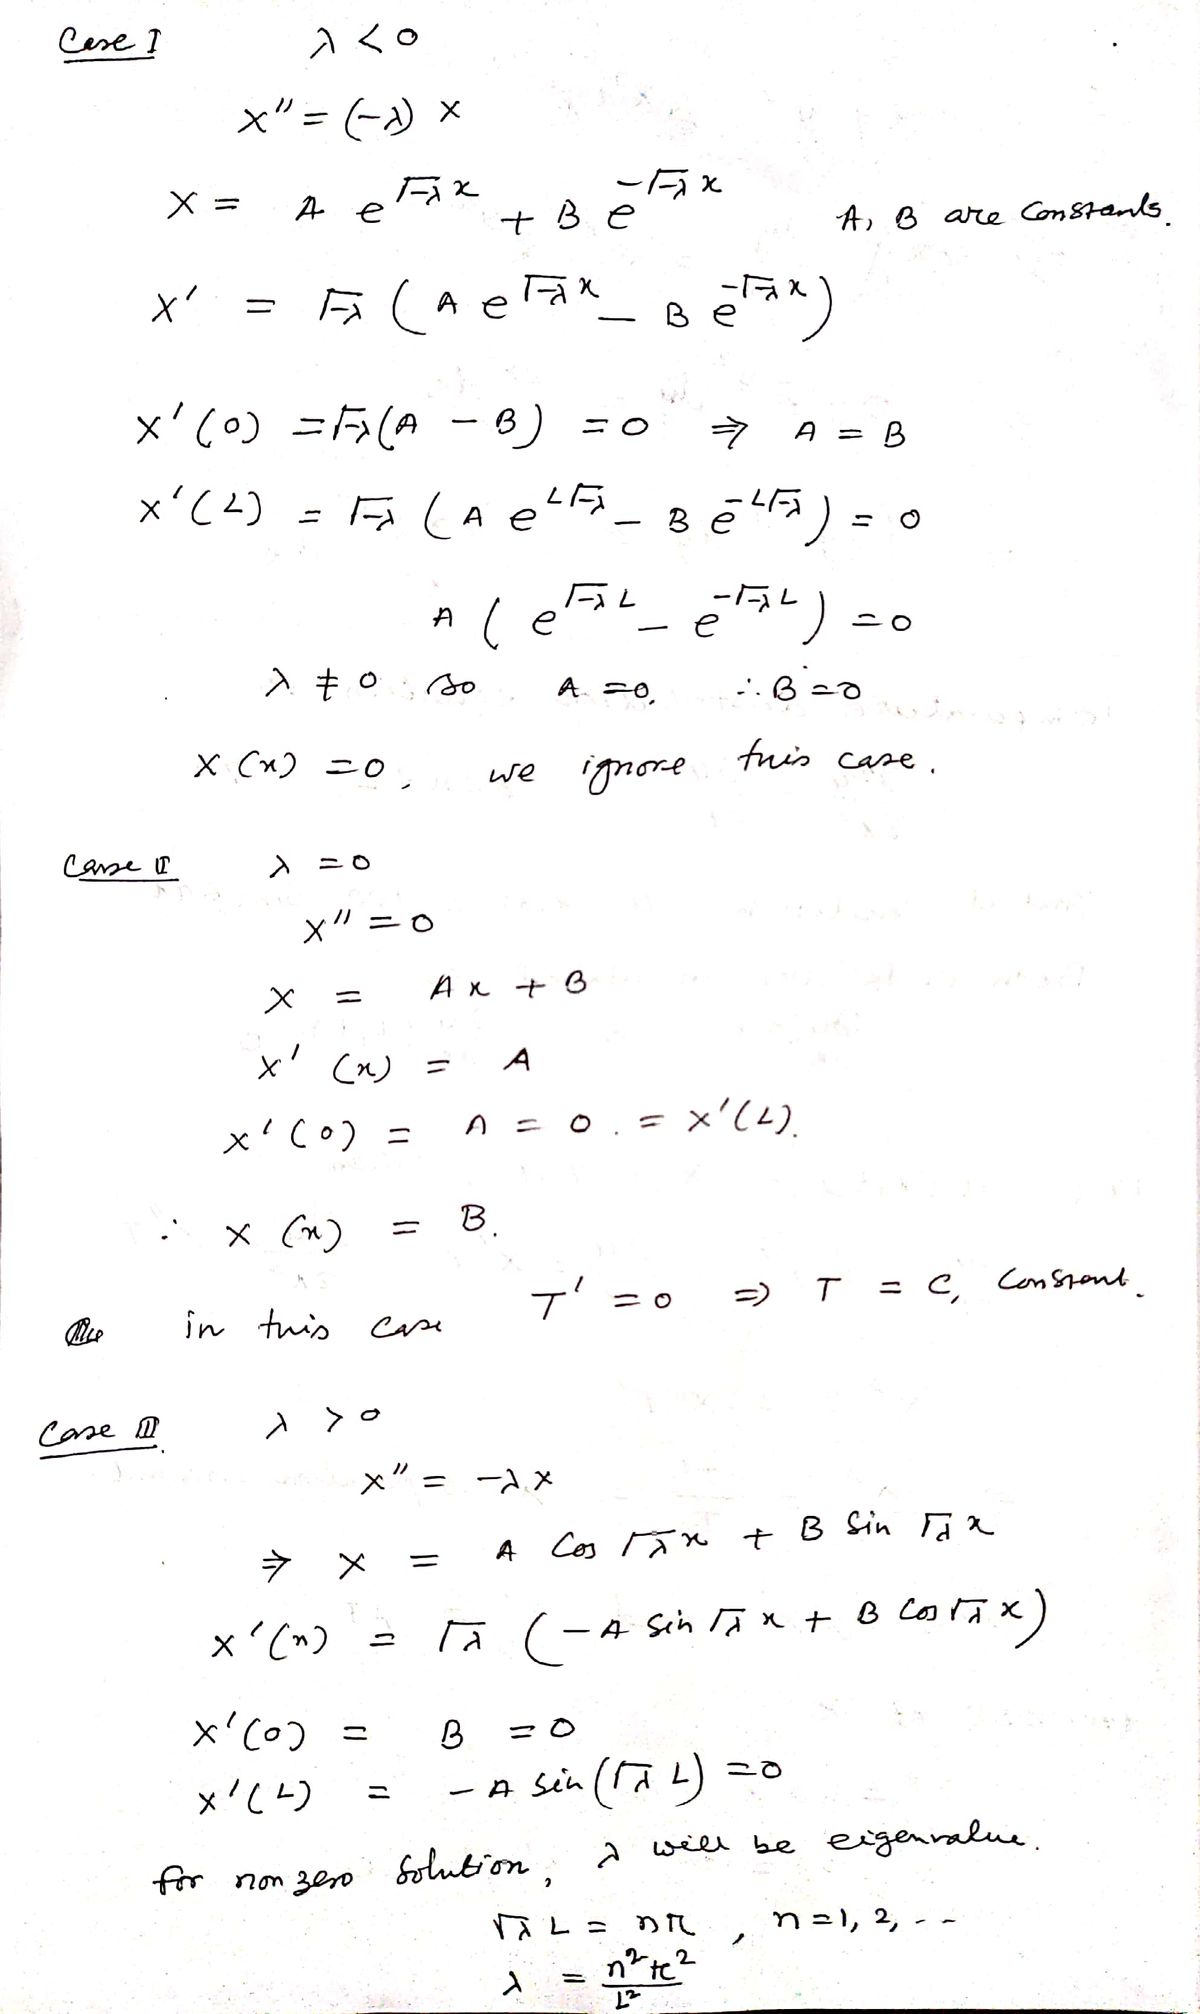 Case I λ < 0
X'' = (-λ) X
X = A e^{√-λ x} + B e^{-√-λ x} A, B are constants.
X' = √-λ (A e^{√-λ x} - B e^{-√-λ x})
X'(0) = √-λ (A - B) = 0 ⇒ A = B
X'(L) = √-λ (A e^{L√-λ} - B e^{-L√-λ}) = 0
A (e^{√-λ L} - e^{-√-λ L}) = 0
λ ≠ 0 so A = 0, ∴ B = 0
X(x) = 0, we ignore this case.
Case II λ = 0
X'' = 0
X = Ax + B
X'(x) = A
X'(0) = A = 0. = X'(L).
∴ X(x) = B.
in this case T' = 0 ⇒ T = C, Constant.
Case III. λ > 0
X'' = -λX
⇒ X = A Cos √λ x + B Sin √λ x
X'(x) = √λ (-A Sin √λ x + B Cos √λ x)
X'(0) = B = 0
X'(L) = -A Sin(√λ L) = 0
for non zero solution, λ will be eigenvalue.
√λ L = nπ, n = 1, 2, --
λ = n²π²/L²